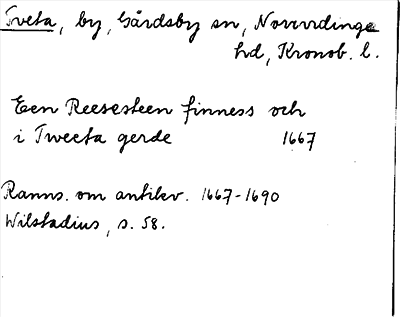 Tveta, by, Gårdsby sn, Norrvidinge
hd, Kronob. l.
Een Reesesteen finness och
i Tweeta gerde 1667
Ranns. om antikv. 1667-1690
Wilstadius, s. 58.